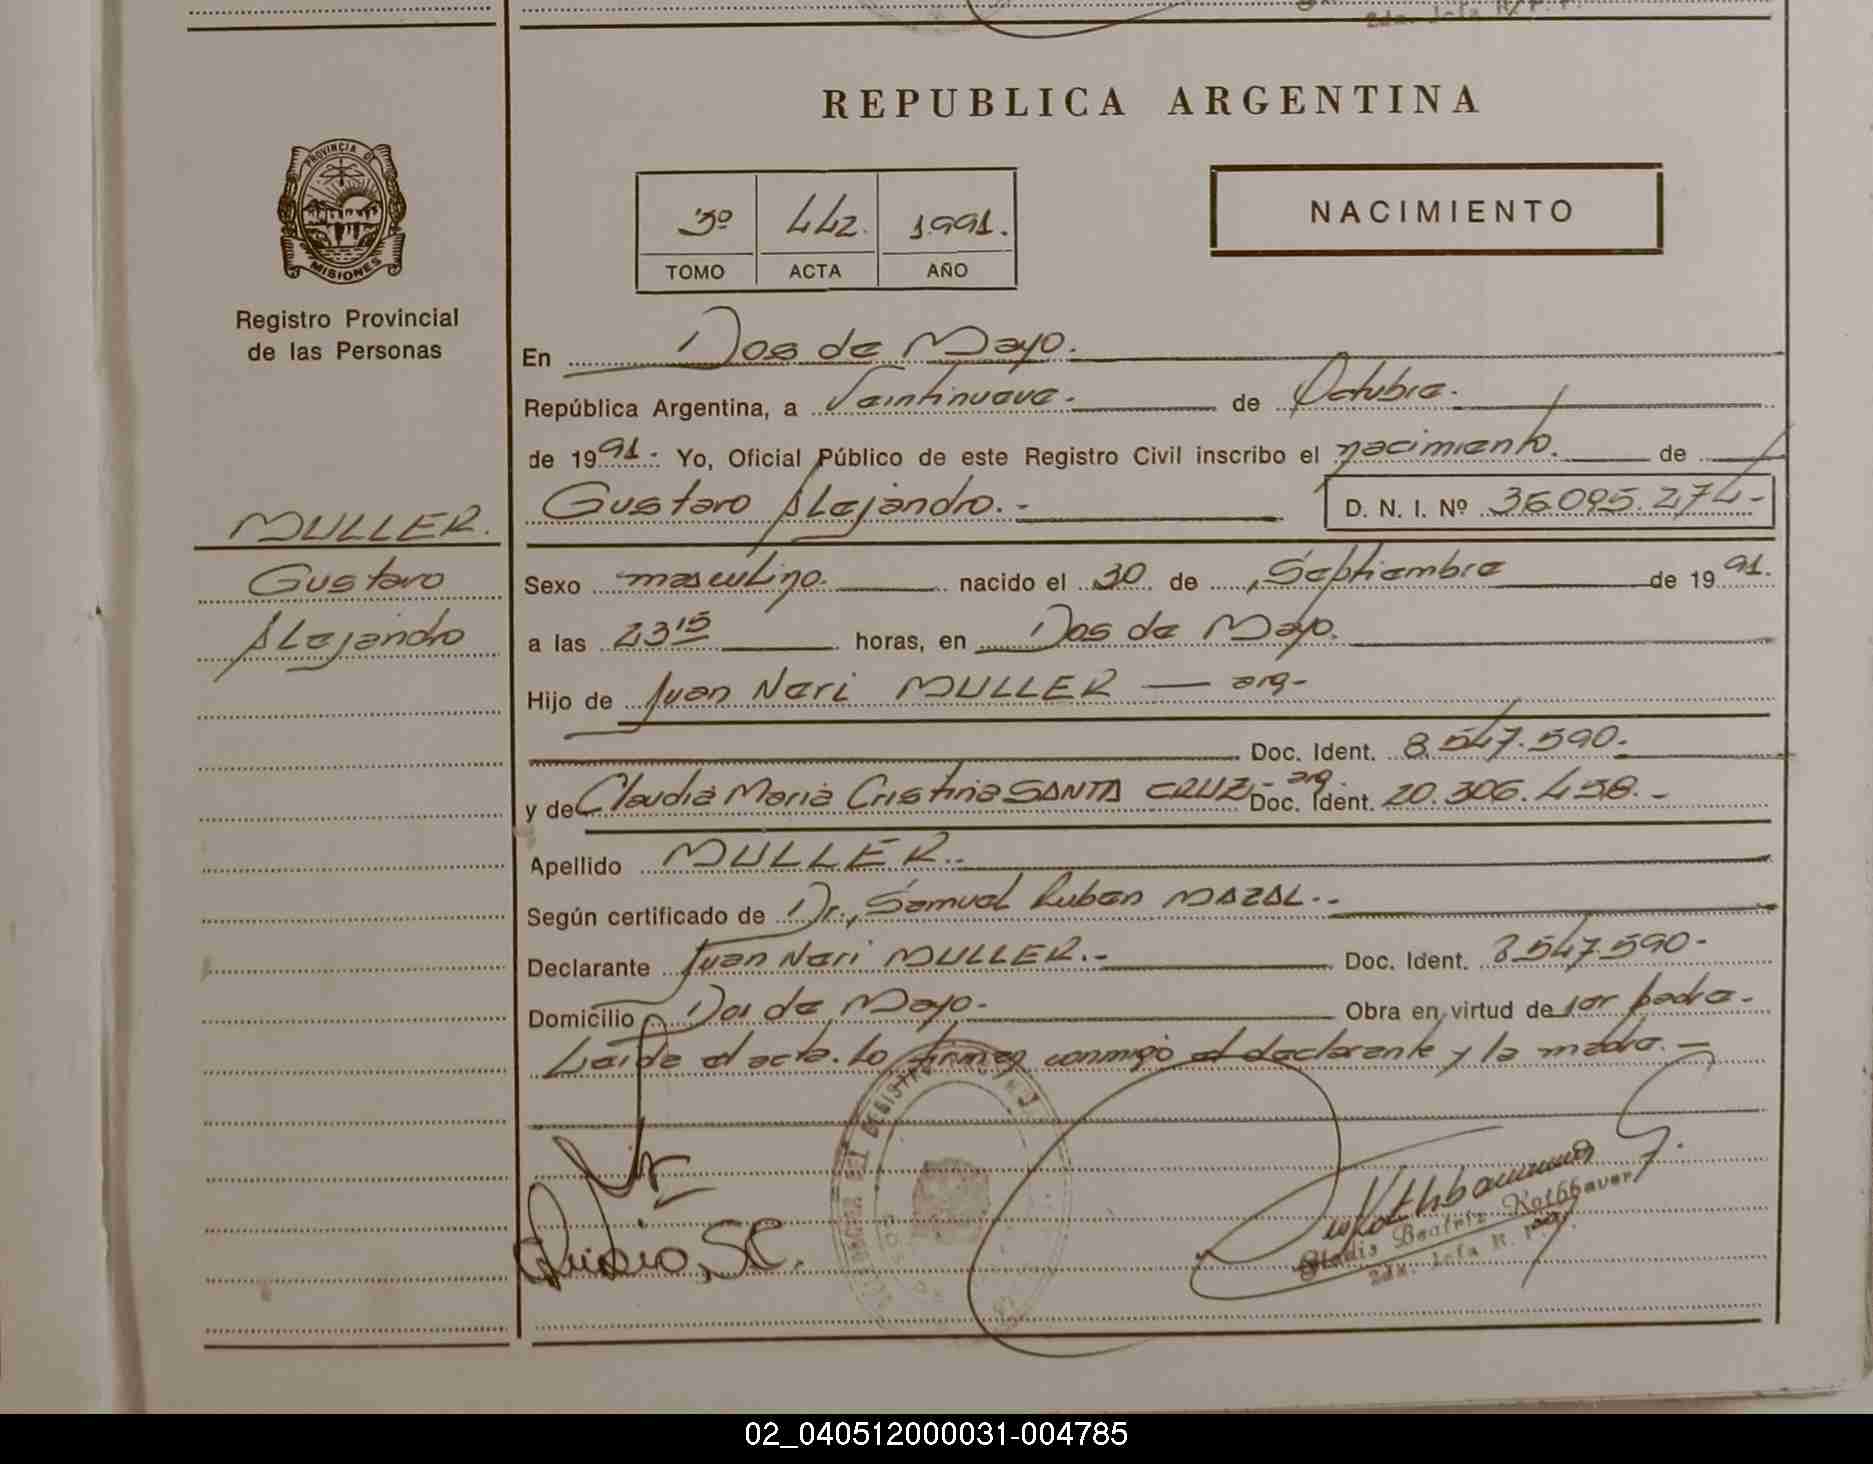 REPUBLICA ARGENTINA
PROVINCIA DE
MISIONES
Registro Provincial
de las Personas
3º 442. 1991.
TOMO ACTA AÑO
NACIMIENTO
En Dos de Mayo.
República Argentina, a Veintinueve. de Octubre.
de 1991. Yo, Oficial Público de este Registro Civil inscribo el nacimiento. de
Gustavo Alejandro. D. N. I. Nº 36.095.274
MULLER.
Gustavo
Alejandro
Sexo masculino. nacido el 30 de Septiembre de 1991.
a las 23 15 horas, en Dos de Mayo.
Hijo de Juan Neri MULLER — arg-
Doc. Ident. 8.547.590.
y de Claudia Maria Cristina SANTA CRUZ - arg. Doc. Ident. 20.306.458.-
Apellido MULLER.
Según certificado de Dr., Samuel Ruben MAZAL.-
Declarante Juan Neri MULLER.- Doc. Ident. 8.547.590-
Domicilio Dos de Mayo. Obra en virtud de ser padre.-
Leída el acta. la firman conmigo el declarante y la madre.-
Gladis Beatriz Rothbauer
2da. Jefa R. P. P.
02_040512000031-004785